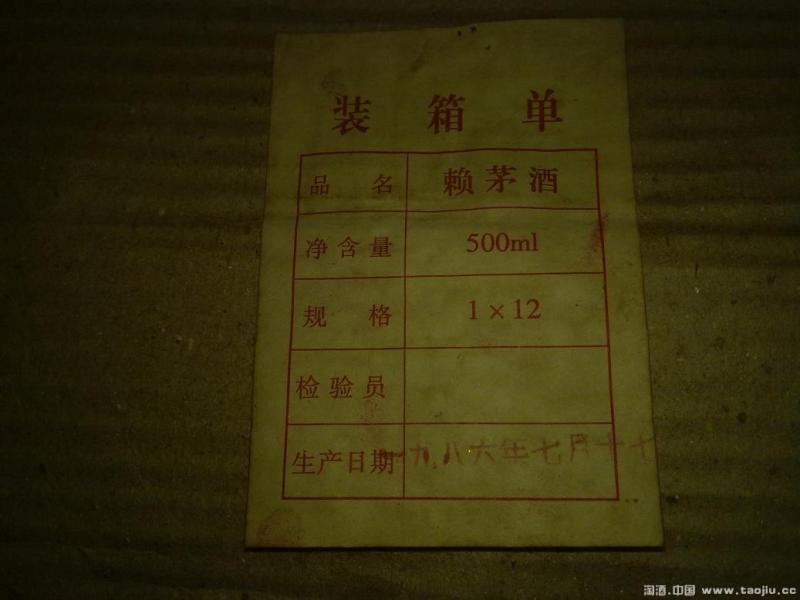 装箱单
品名 赖茅酒
净含量 500ml
规格 1×12
检验员
生产日期 一九八六年七月十七
淘酒.中国 www.taojiu.cc